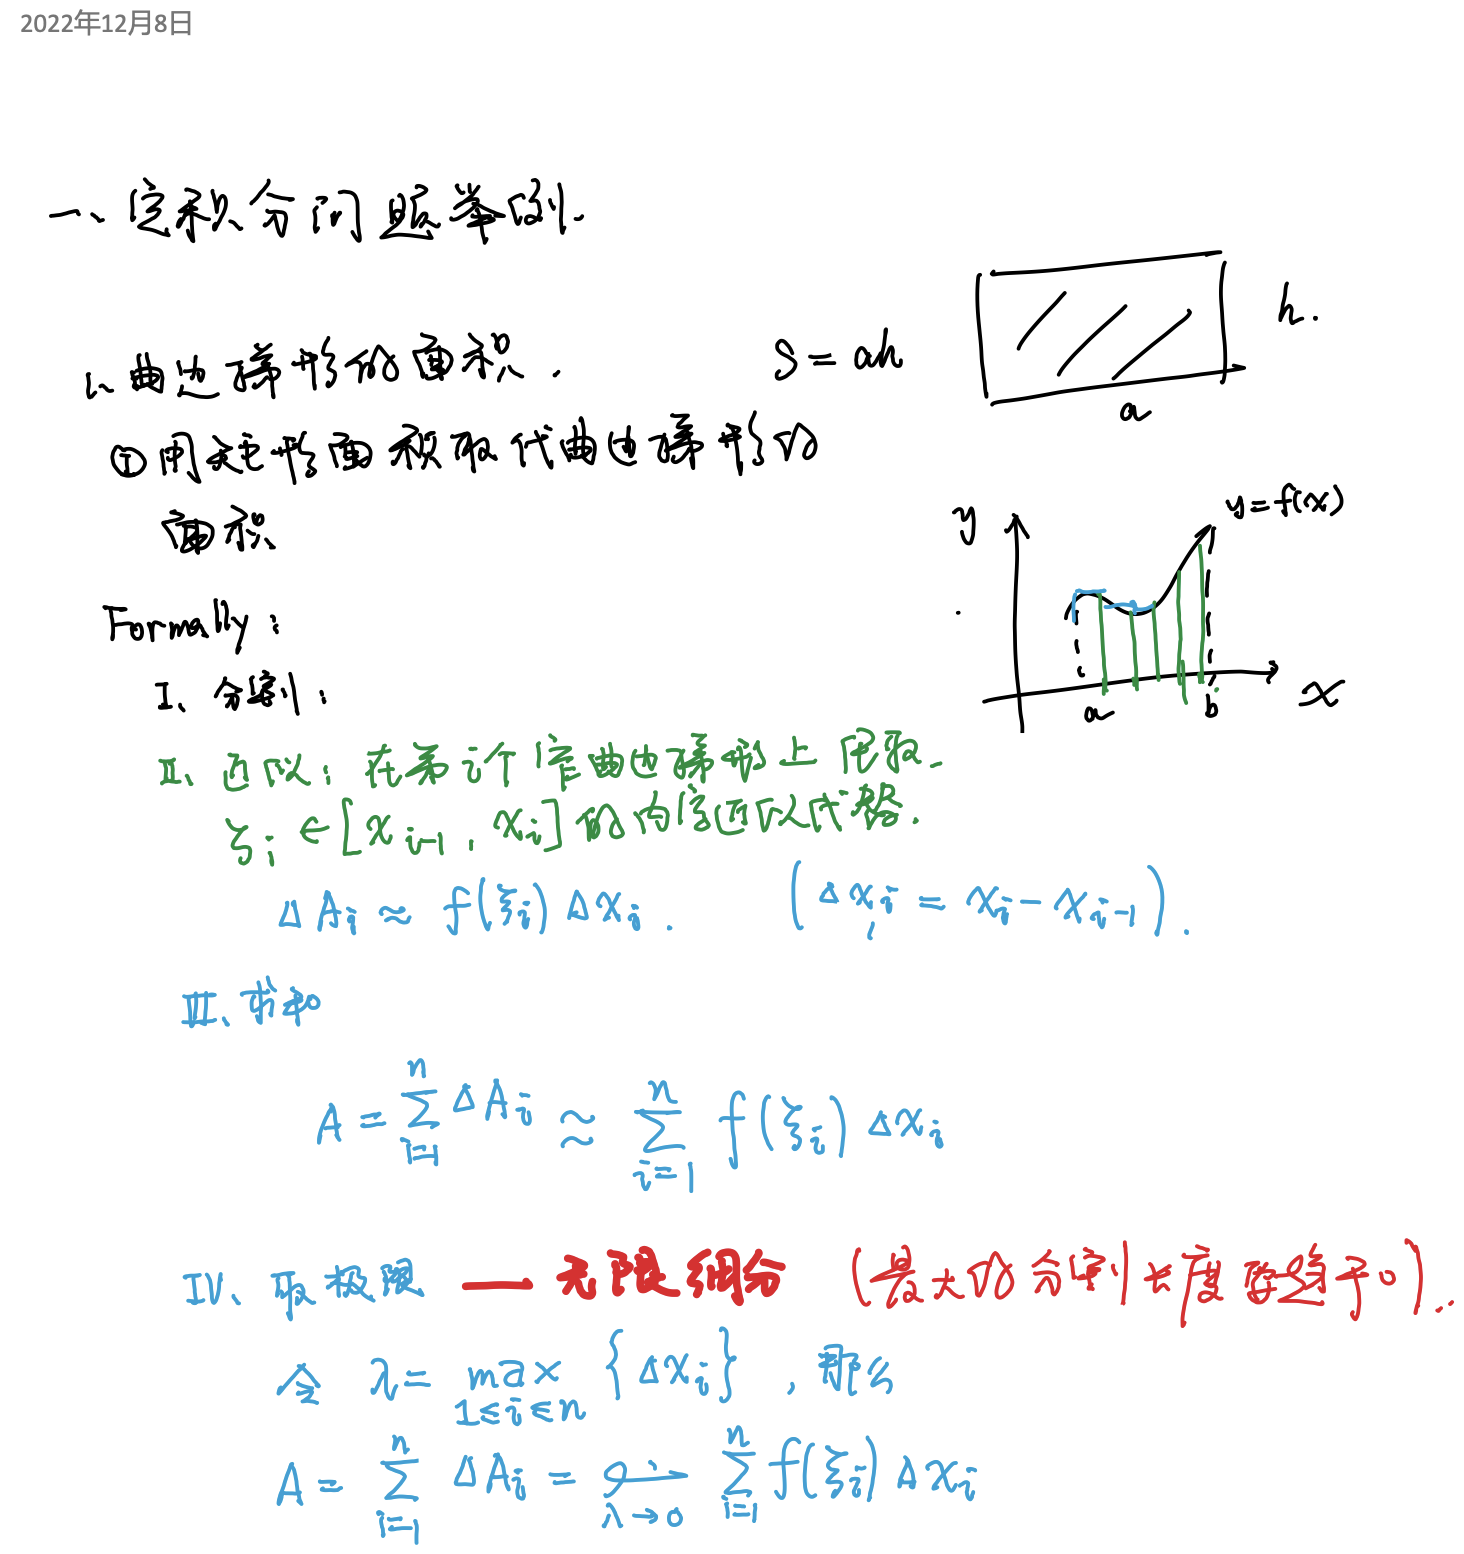 2022年12月8日
一、定积分问题举例.
1、曲边梯形的面积.
S = ah
h.
a
① 用矩形面积取代曲边梯形的
面积
y
y = f(x)
a
b
x
Formally:
I、分割:
II、近似: 在第i个窄曲边梯形上任取
ξi ∈ [xi-1, xi] 的内容近似代替.
ΔAi ≈ f(ξi) Δxi. (Δxi = xi - xi-1).
III、求和
A = ∑_{i=1}^{n} ΔAi ≈ ∑_{i=1}^{n} f(ξi) Δxi
IV、取极限 — 无限细分 (最大的分割长度要趋于0)..
令 λ = max_{1≤i≤n} {Δxi}, 那么
A = ∑_{i=1}^{n} ΔAi = lim_{λ→0} ∑_{i=1}^{n} f(ξi) Δxi